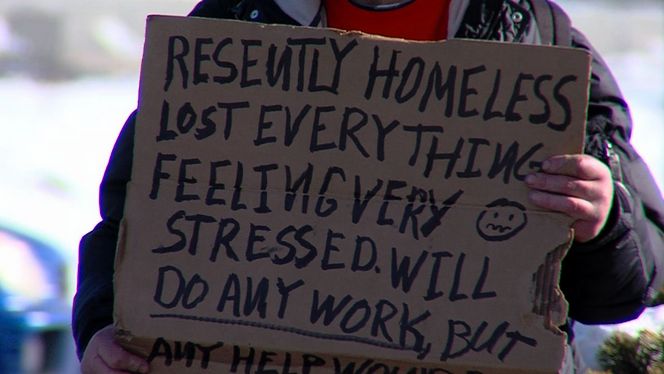 RESENTLY HOMELESS
LOST EVERYTHING
FEELING VERY
STRESSED. WILL
DO ANY WORK, BUT
ANY HELP WOULD